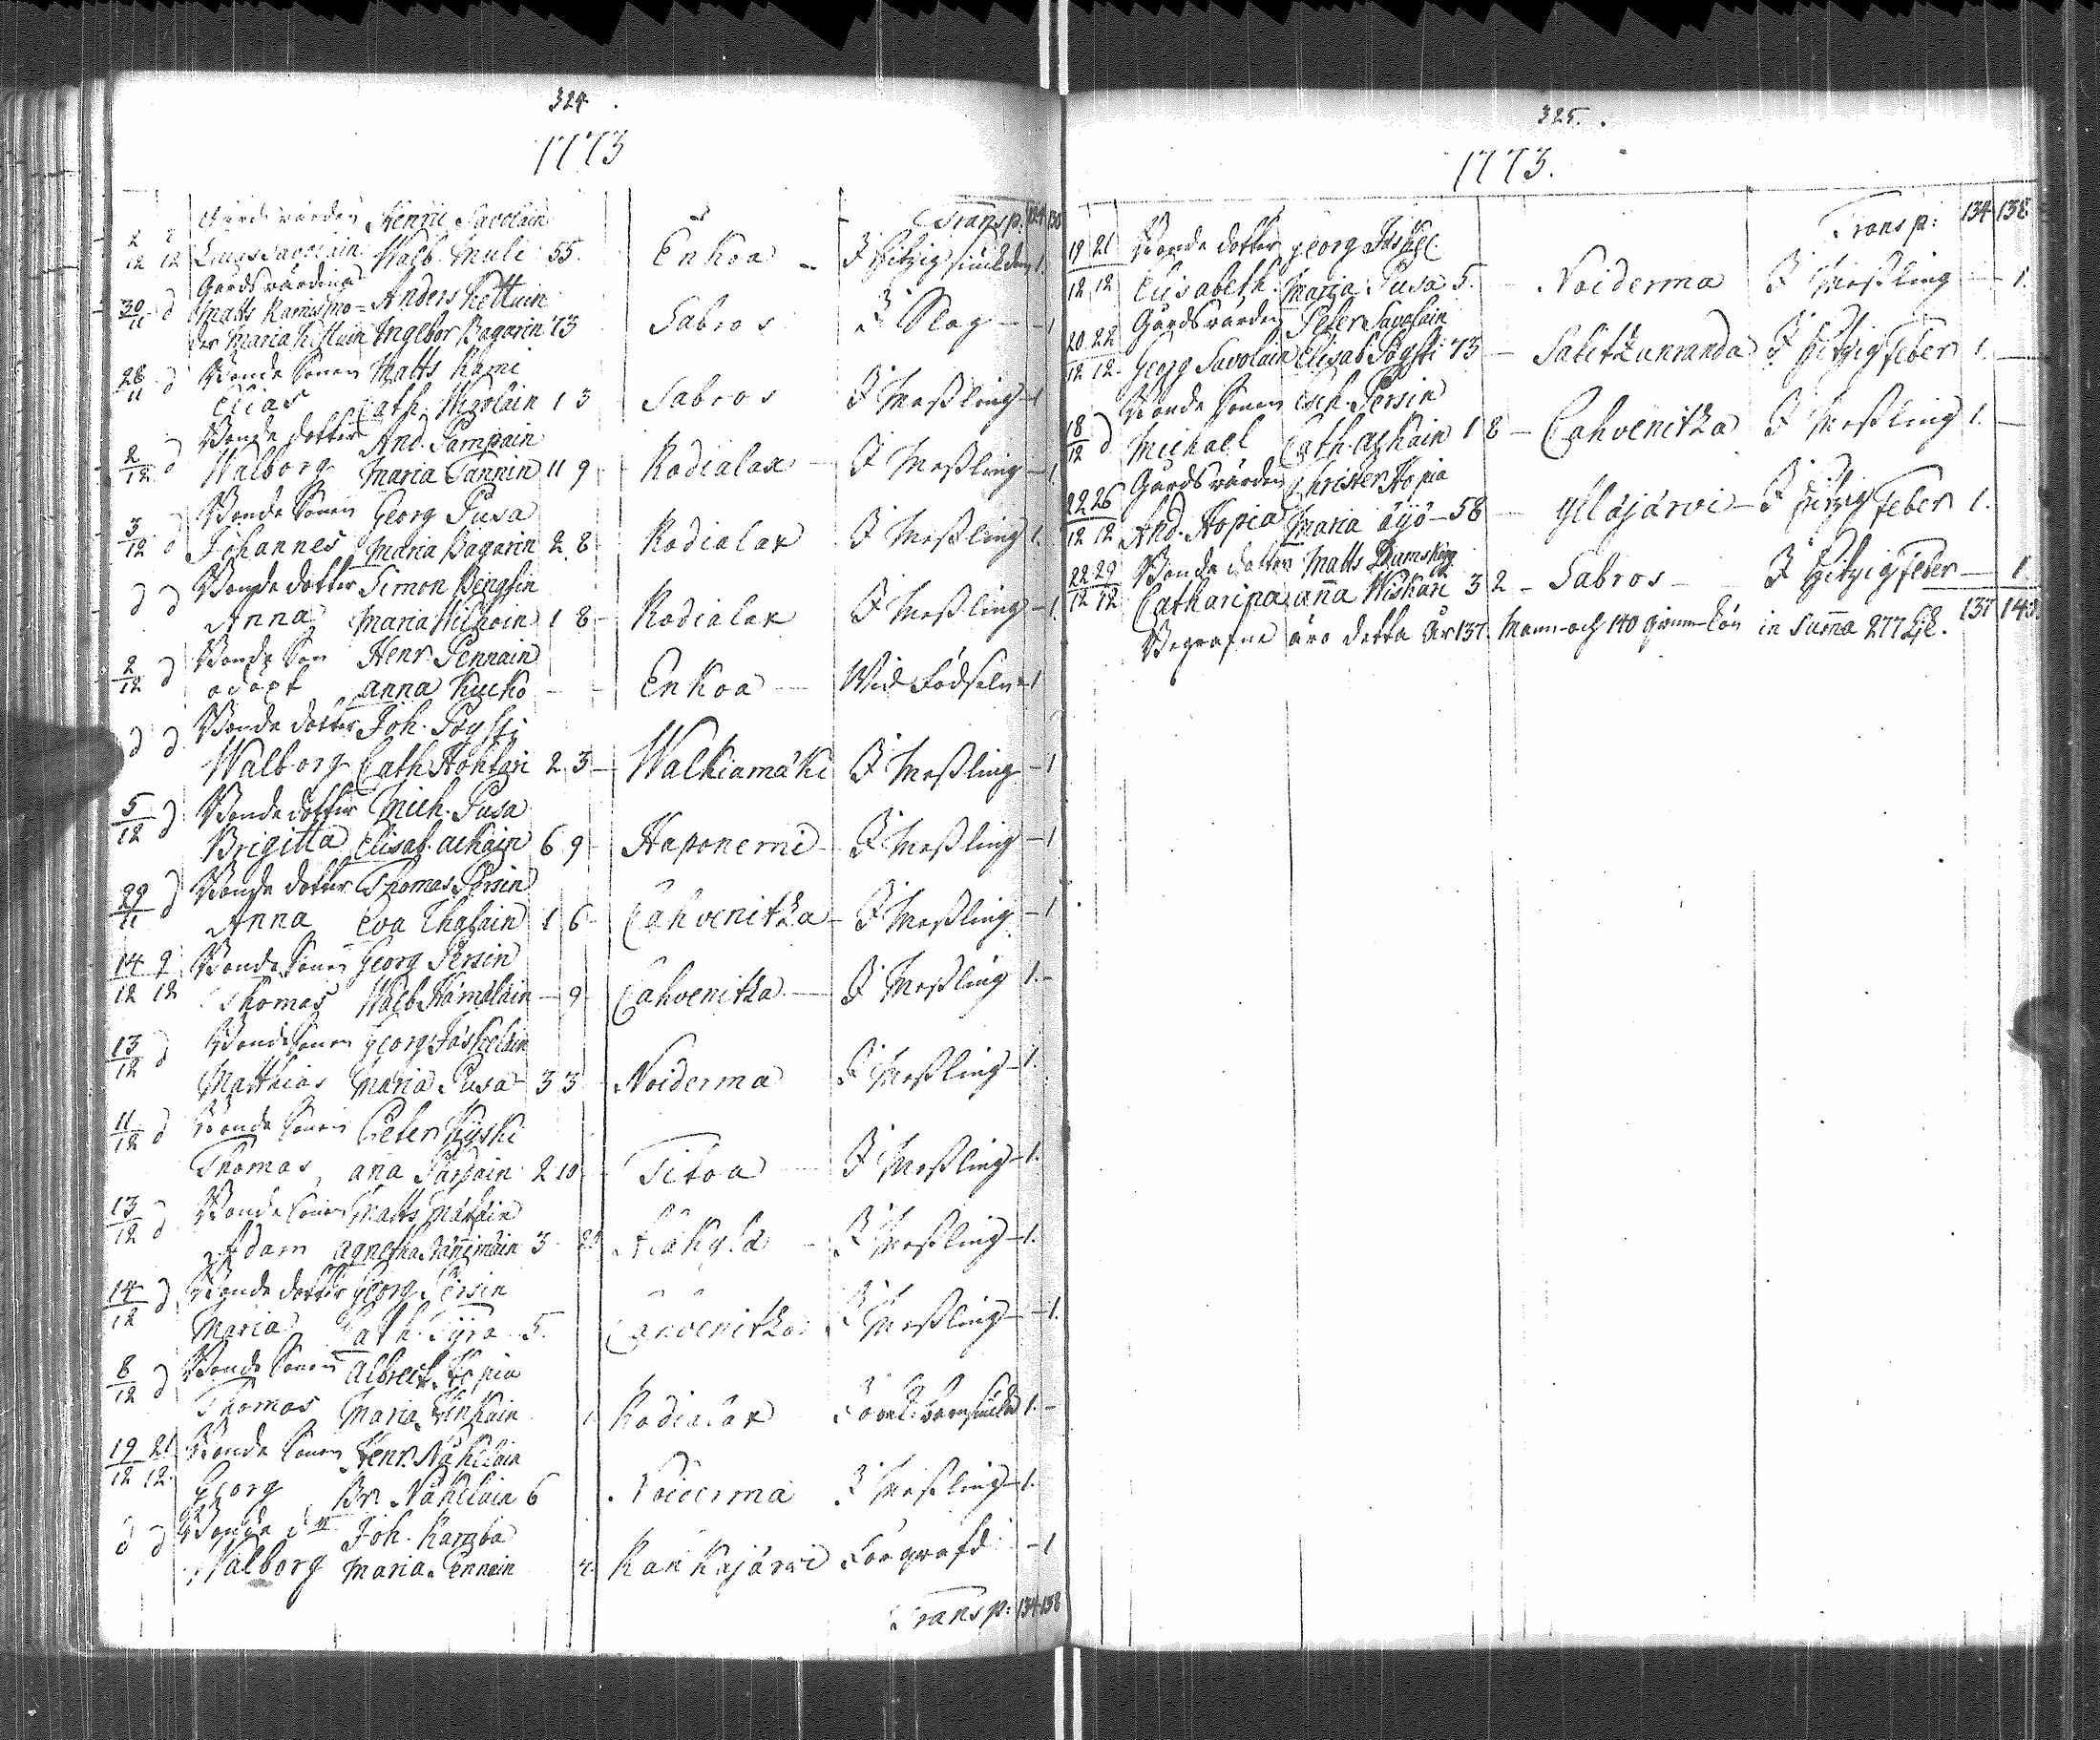 324
1773
Transp. 124 130
2 2 Gårdsvärden Henric Savolain
12 12 Savolain Walb. Muli 55. Enkoa I hitzig siukdom 1.
Gårdsvärdina
30 d Matts Ramis mo= Anders Kettuin
11 der Maria Kettuin Ingebor Pagarin 73 Sabros I Slag - 1
28 d Bonde Sonen Matts Rami
11 Elias Cath. 1 3 Sabros I Meßling 1
2 d Bonde dotter And. Pampain
12 Walborg Maria Tannin 11 9 Kodialax I Meßling - 1
3 d Bonde Sonen Georg Pusa
12 Johannes Maria Pagarin 2 8 Kodialax I Meßling 1.
d d Bonde dotter Simon
Anna Maria 1 8 Kodialax I Meßling - 1
2 d Bonde Son Henr. Pennain
12 odöpt anna Kucko - - Enkoa Wid Födseln 1
d d Bonde dotter Joh. Pöysti
Walborg Cath. 2 3 Walkiamäki I Meßling - 1
5 d Bonde dotter Mich. Pusa
12 Brigitta Elisab. Achain 6 9 Haponemi I Meßling - 1
29 d Bonde dotter Thomas Persin
11 Anna Eva 1 6 Cahvenitza I Meßling - 1
14 9 Bonde Sonen Georg Persin
12 12 Thomas Walb. Hämäläin - 9 Cahvenitza I Meßling 1. -
13 d Bonde Sonen Georg Jäskeläin
12 Matthias Maria Pusa 3 3 Noiderma I Meßling 1.
11 d Bonde Sonen Peter Kyski
12 Thomas ana 2 10 Titoa I Meßling - 1.
13 d Bonde Sonen Matts
12 Adam Agnetha 3 I Meßling - 1.
14 d Bonde dotter Georg Persin
12 Maria Cath. Tyra 5. Cahvenitza I Meßling - 1.
8 d Bonde Sonen Albrecht Hopia
12 Thomas Maria 1 Kodialax 1. -
19 21 Bonde Sonen Henr. Näkeläin
12 12. Georg Br. Näkeläin 6 Noiderma I Meßling - 1.
d d Bonde Joh. Kamba
Walborg Maria Pennain Kankajärvi - 1
Transp: 134 138
325.
1773.
Transp: 134 138
19 21 Bonde dotter Georg Jäskel.
12 12 Elisabeth. Maria Pusa 5. Noiderma I Meßling - 1.
20 22 Gårdsvärden Peter Savolain
12 12. Georg Savolain Elisab. Pöysti 73 - Satitzanranda I Hitzig feber 1. -
18 d Bonde Sonen Erh. Persin
12 Michael Cath. Achain 1 8 - Cahvenitza I Meßling 1. -
22 26 Gårdsvärden Christer Hopia
12 12 And. Hopia Maria äijö - 58 - Ylläjärvi - I Hitzig Feber 1.
22 29 Bonde dotter Matts
12 12 Catharina, anna 3 2 - Sabros - I Hitzig feber - 1
137 140
Begrafne äro detta År 137. Mann- och 140 qvinn-kön in Summa 277